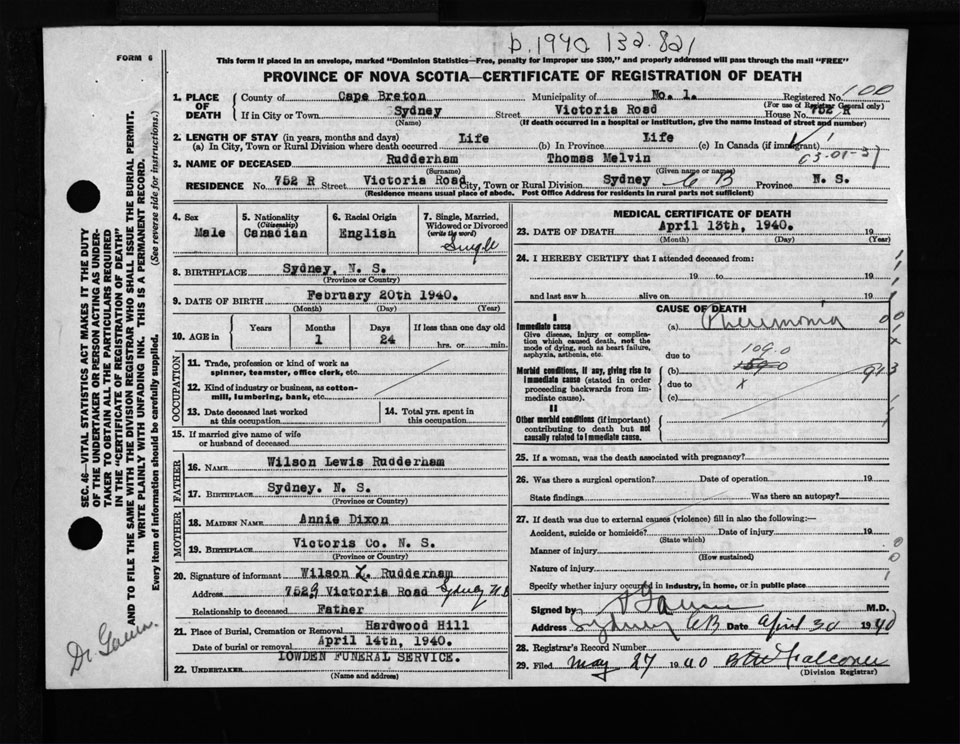 b.1940 132.821
FORM 6
This form if placed in an envelope, marked "Dominion Statistics—Free, penalty for improper use $300," and properly addressed will pass through the mail "FREE"
PROVINCE OF NOVA SCOTIA—CERTIFICATE OF REGISTRATION OF DEATH
1. PLACE OF DEATH County of Cape Breton Municipality of No. 1. Registered No. 100
(For use of Registrar General only)
If in City or Town Sydney Street Victoria Road House No. 752 R
(Name) (If death occurred in a hospital or institution, give the name instead of street and number)
2. LENGTH OF STAY (in years, months and days)
(a) In City, Town or Rural Division where death occurred Life (b) In Province Life (c) In Canada (if immigrant)
03-01-37
3. NAME OF DECEASED Rudderham Thomas Melvin
(Surname) (Given name or names)
RESIDENCE No. 752 R Street Victoria Road City, Town or Rural Division Sydney C B Province N. S.
(Residence means usual place of abode. Post Office Address for residents in rural parts not sufficient)
4. Sex Male
5. Nationality (Citizenship) Canadian
6. Racial Origin English
7. Single, Married, Widowed or Divorced (write the word) Single
8. BIRTHPLACE Sydney, N. S.
(Province or Country)
9. DATE OF BIRTH February 20th 1940.
(Month) (Day) (Year)
10. AGE in Years Months Days If less than one day old
1 24 hrs. or min.
OCCUPATION
11. Trade, profession or kind of work as spinner, teamster, office clerk, etc.
12. Kind of industry or business, as cotton-mill, lumbering, bank, etc.
13. Date deceased last worked at this occupation
14. Total yrs. spent in this occupation
15. If married give name of wife or husband of deceased
FATHER
16. NAME Wilson Lewis Rudderham
17. BIRTHPLACE Sydney. N. S.
(Province or Country)
MOTHER
18. MAIDEN NAME Annie Dixon
19. BIRTHPLACE Victoris Co. N. S.
(Province or Country)
20. Signature of informant Wilson L. Rudderham
Address 752 Victoria Road Sydney N.S
Relationship to deceased Father
21. Place of Burial, Cremation or Removal Hardwood Hill
Date of burial or removal April 14th, 1940.
22. UNDERTAKER LOWDEN FUNERAL SERVICE.
(Name and address)
MEDICAL CERTIFICATE OF DEATH
23. DATE OF DEATH April 13th, 1940. 19
(Month) (Day) (Year)
24. I HEREBY CERTIFY that I attended deceased from:
19 to 19
and last saw h alive on 19
CAUSE OF DEATH
I
Immediate cause
Give disease, injury or complication which caused death, not the mode of dying, such as heart failure, asphyxia, asthenia, etc.
(a) Pneumonia
due to 109.0
Morbid conditions, if any, giving rise to immediate cause (stated in order proceeding backwards from immediate cause).
(b)
due to
(c)
II
Other morbid conditions (if important) contributing to death but not causally related to immediate cause.
25. If a woman, was the death associated with pregnancy?
26. Was there a surgical operation? Date of operation 19
State findings Was there an autopsy?
27. If death was due to external causes (violence) fill in also the following:—
Accident, suicide or homicide? Date of injury 19
(State which)
Manner of injury
(How sustained)
Nature of injury
Specify whether injury occurred in industry, in home, or in public place
Signed by M.D.
Address Sydney CB Date April 30 1940
28. Registrar's Record Number
29. Filed May 27 1940 Falconer
(Division Registrar)
SEC. 46—VITAL STATISTICS ACT MAKES IT THE DUTY
OF THE UNDERTAKER OR PERSON ACTING AS UNDER-
TAKER TO OBTAIN ALL THE PARTICULARS REQUIRED
IN THE "CERTIFICATE OF REGISTRATION OF DEATH"
AND TO FILE THE SAME WITH THE DIVISION REGISTRAR WHO SHALL ISSUE THE BURIAL PERMIT.
WRITE PLAINLY WITH UNFADING INK. THIS IS A PERMANENT RECORD.
Every item of information should be carefully supplied. (See reverse side for instructions.)
Dr